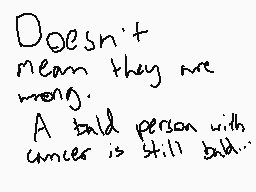 Doesn't
mean they are
wrong.
A bald person with
cancer is still bald...